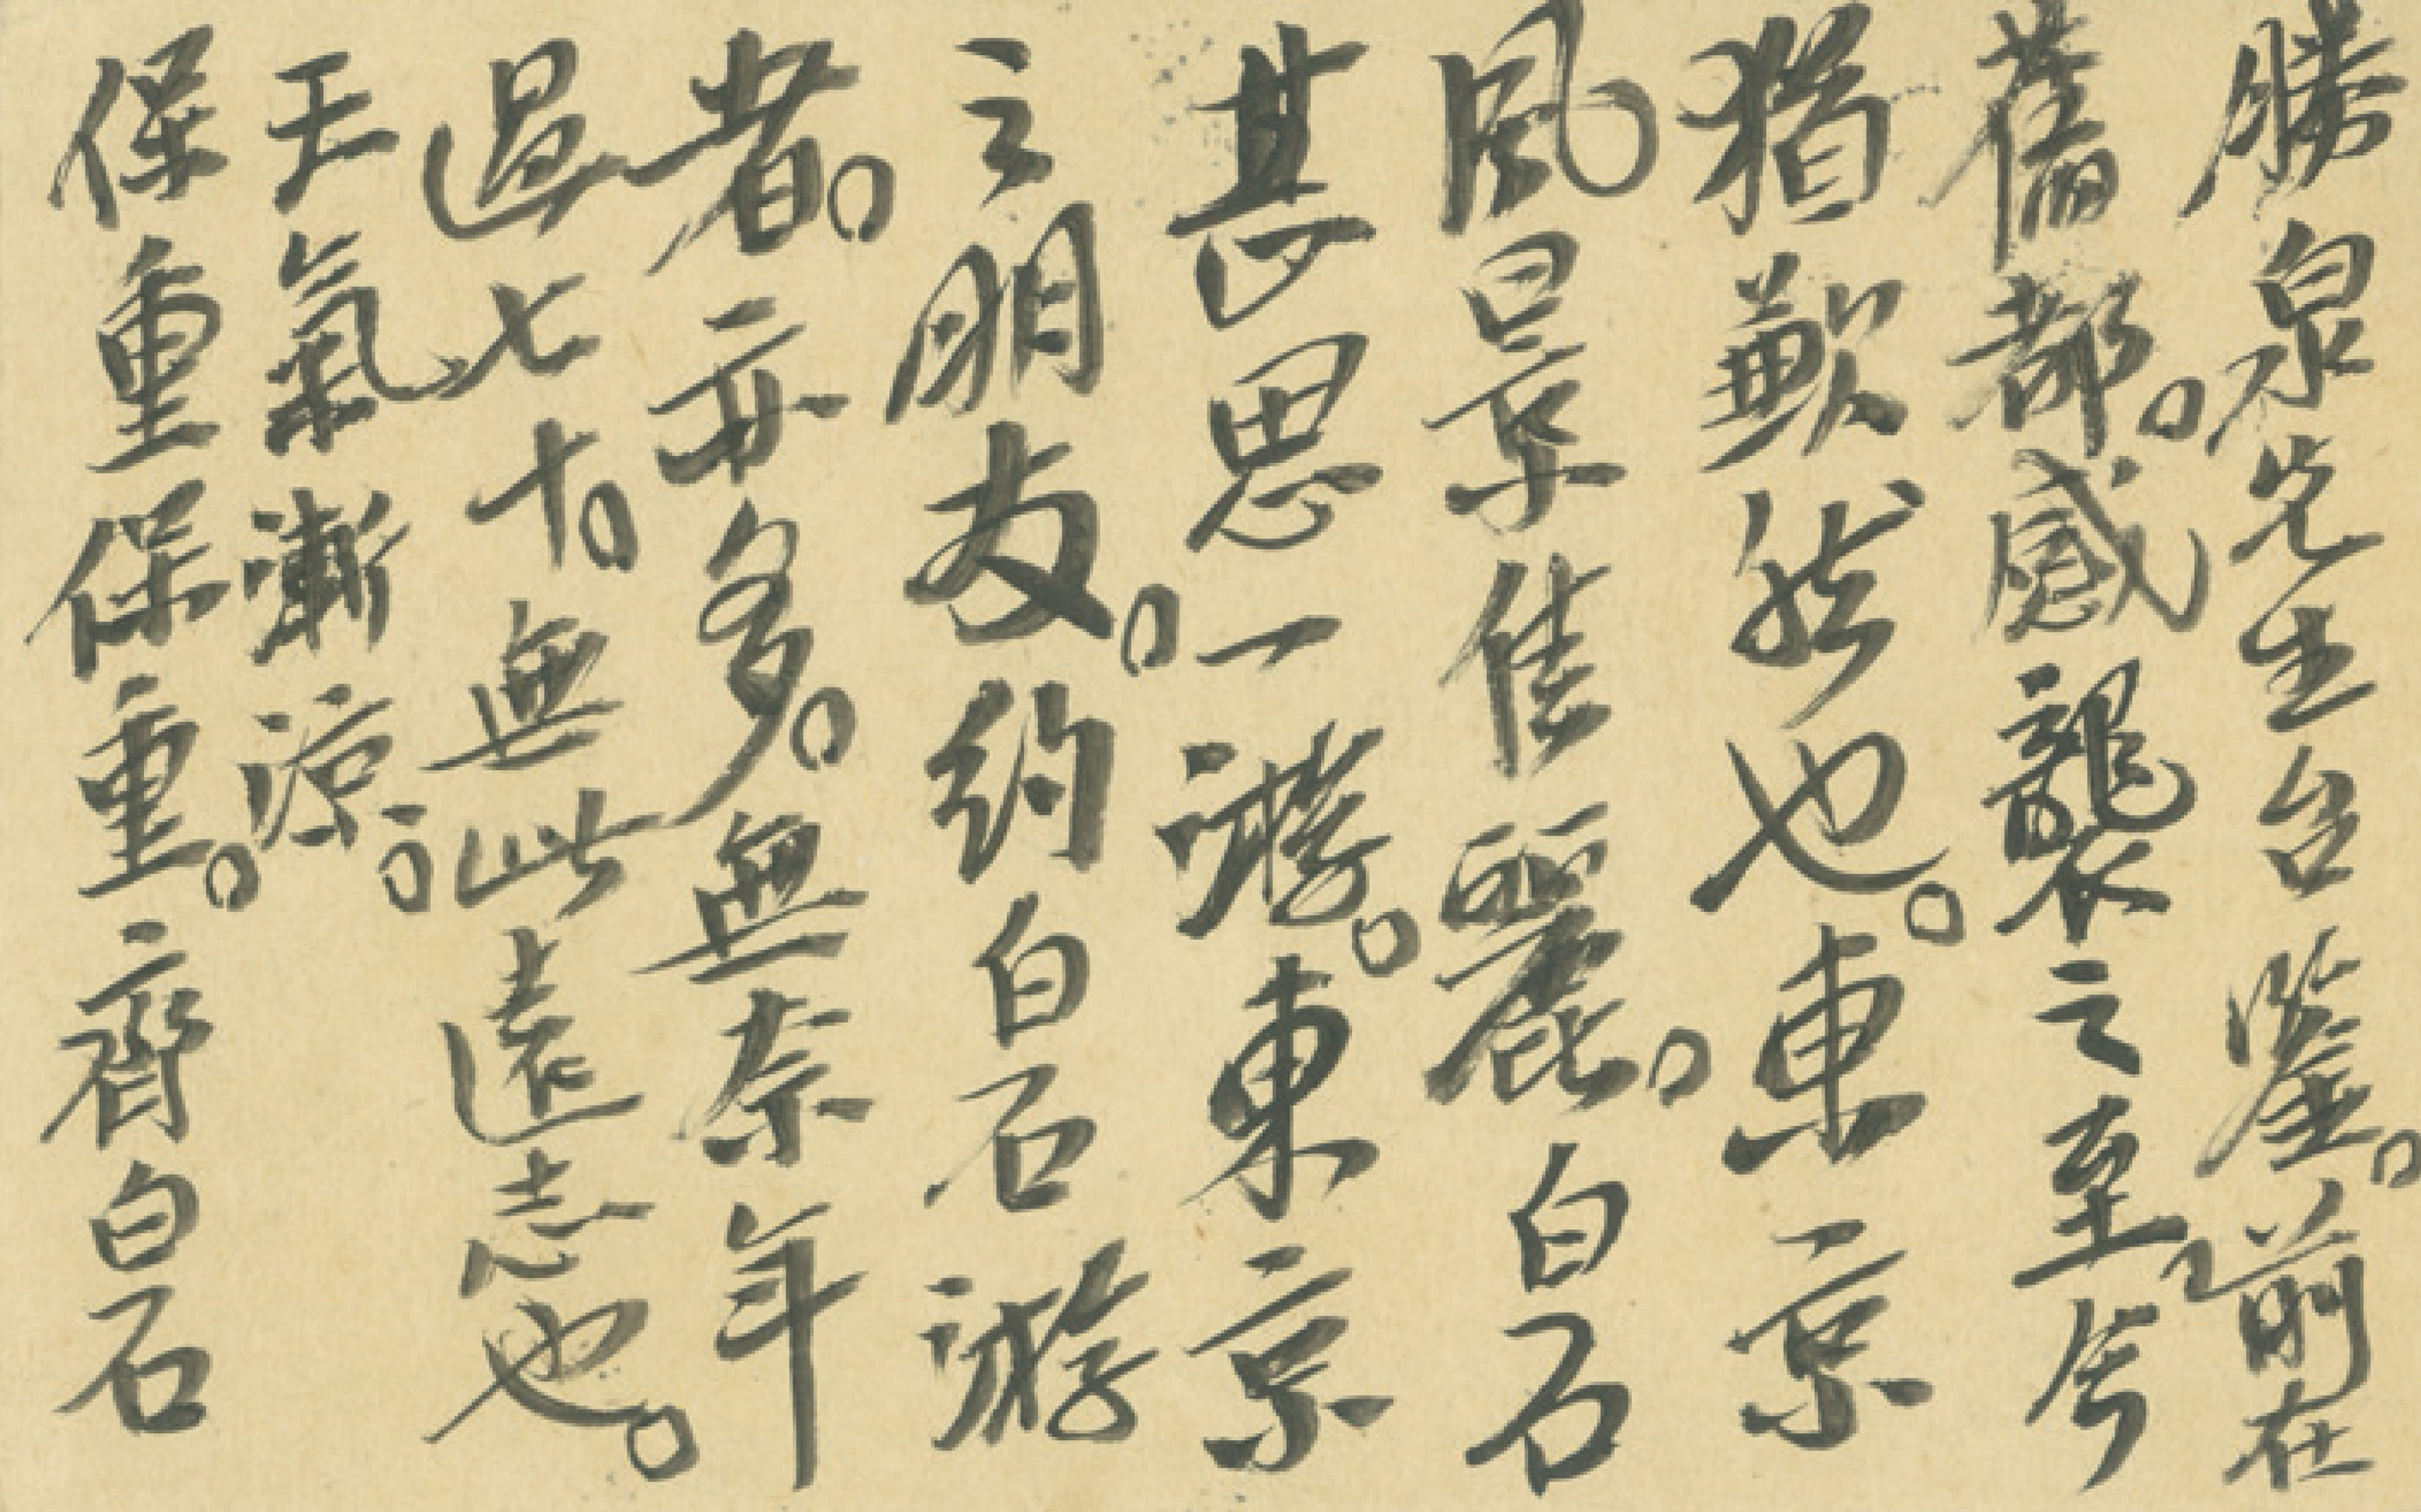 勝泉先生台鑒。前在
舊都。感襲之至今
猶歉然也。東京
風景佳麗。白石
甚思一游。東京
之朋友。約白石游
者。亦多。無奈年
過七十。無此遠志也。
天氣漸涼。
保重保重。齊白石